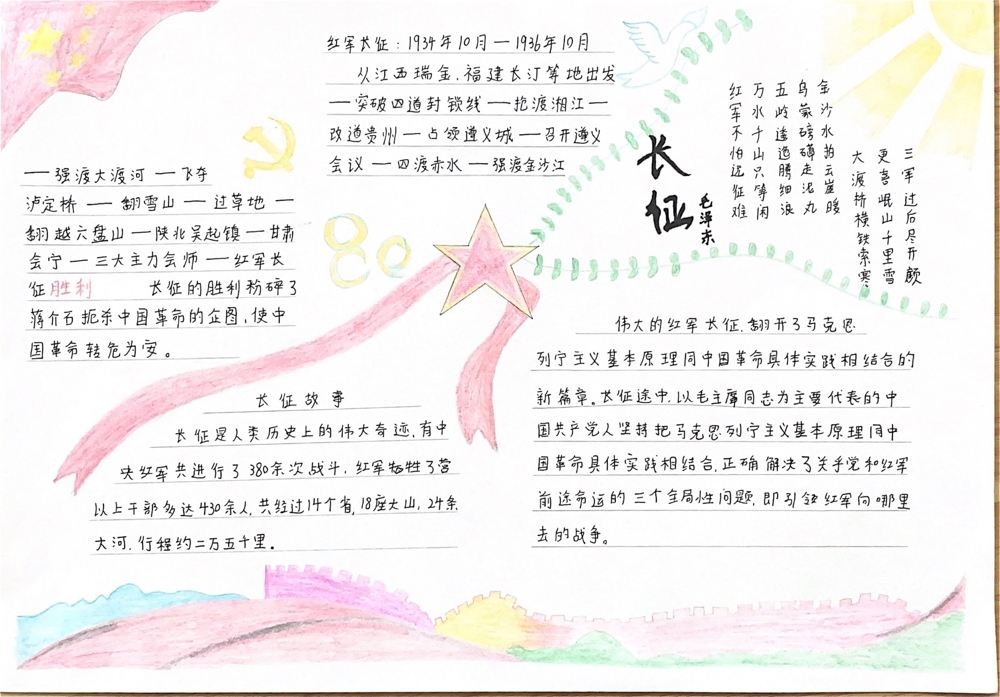 红军长征：1934年10月—1936年10月
从江西瑞金、福建长汀等地出发
—突破四道封锁线—抢渡湘江—
改道贵州—占领遵义城—召开遵义
会议—四渡赤水—强渡金沙江
—强渡大渡河—飞夺
泸定桥—翻雪山—过草地—
翻越六盘山—陕北吴起镇—甘肃
会宁—三大主力会师—红军长
征胜利 长征的胜利粉碎了
蒋介石扼杀中国革命的企图,使中
国革命转危为安。
80
长征
毛泽东
红军不怕远征难
万水千山只等闲
五岭逶迤腾细浪
乌蒙磅礴走泥丸
金沙水拍云崖暖
大渡桥横铁索寒
更喜岷山千里雪
三军过后尽开颜
长征故事
长征是人类历史上的伟大奇迹,有中
央红军共进行了380余次战斗,红军牺牲了营
以上干部多达430余人,共经过14个省,18座大山,24条
大河,行程约二万五千里。
伟大的红军长征,翻开了马克思
列宁主义基本原理同中国革命具体实践相结合的
新篇章。长征途中,以毛主席同志为主要代表的中
国共产党人坚持把马克思列宁主义基本原理同中
国革命具体实践相结合,正确解决了关乎党和红军
前途命运的三个全局性问题,即引领红军向哪里
去的战争。